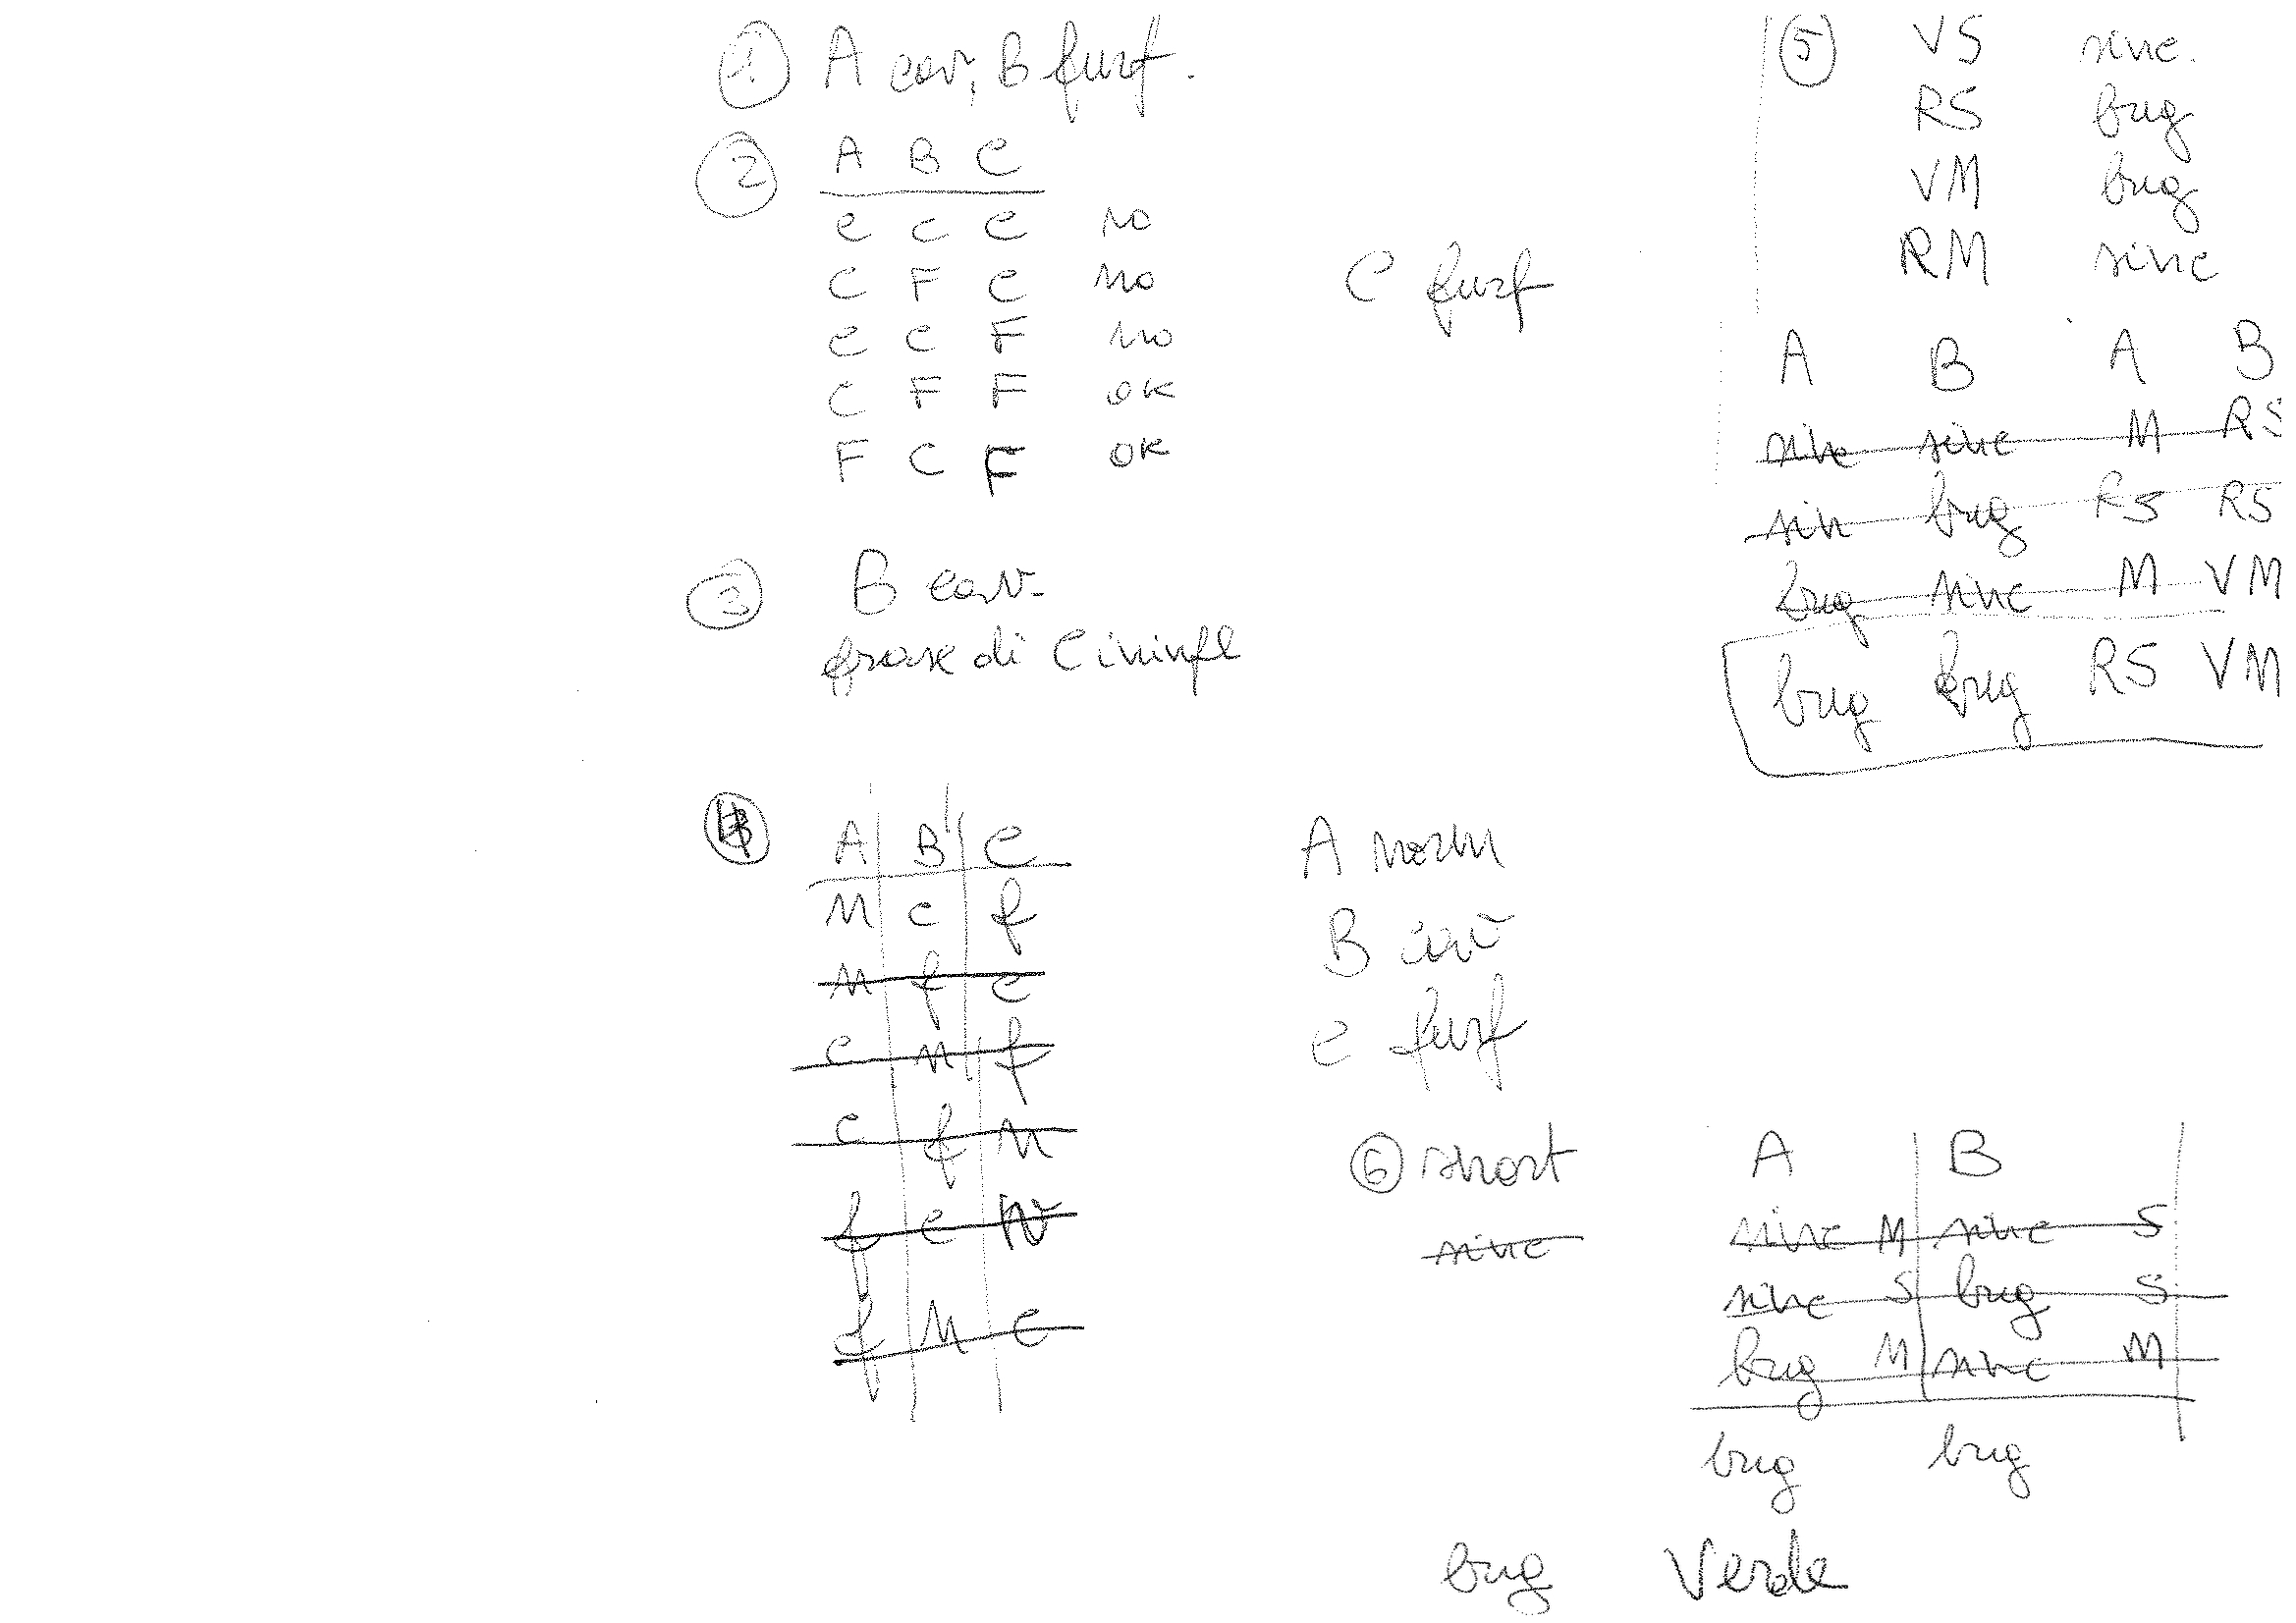 1 A cav, B furf.
2 A B C
C C C no
C F C no
C C F no
C F F OK
F C F OK
C furf
3 B cav.
frase di C ininfl
4 A B C
N C f
N f C
C N f
C f N
f C N
f N C
A norm
B cav
C furf
5 VS sinc.
RS bug
VM bug
RM sinc
A B A B
sinc sinc M RS
sin bug RS RS
bug sinc M VM
bug bug RS VM
6 short
sinc
A B
sinc M sinc S
sinc S bug S
bug M sinc M
bug bug
bug Verde